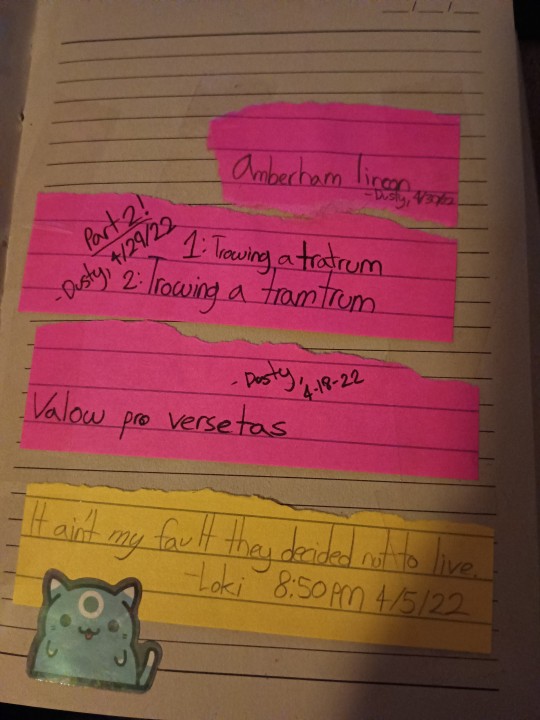 Amberham lincon
-Dusty, 4/30/22
Part 2!
4/29/22
-Dusty,
1: Trowing a tratrum
2: Trowing a tramtrum
- Dusty, 4-18-22
Valow pro versetas
It ain't my fault they decided not to live.
-Loki 8:50 PM 4/5/22